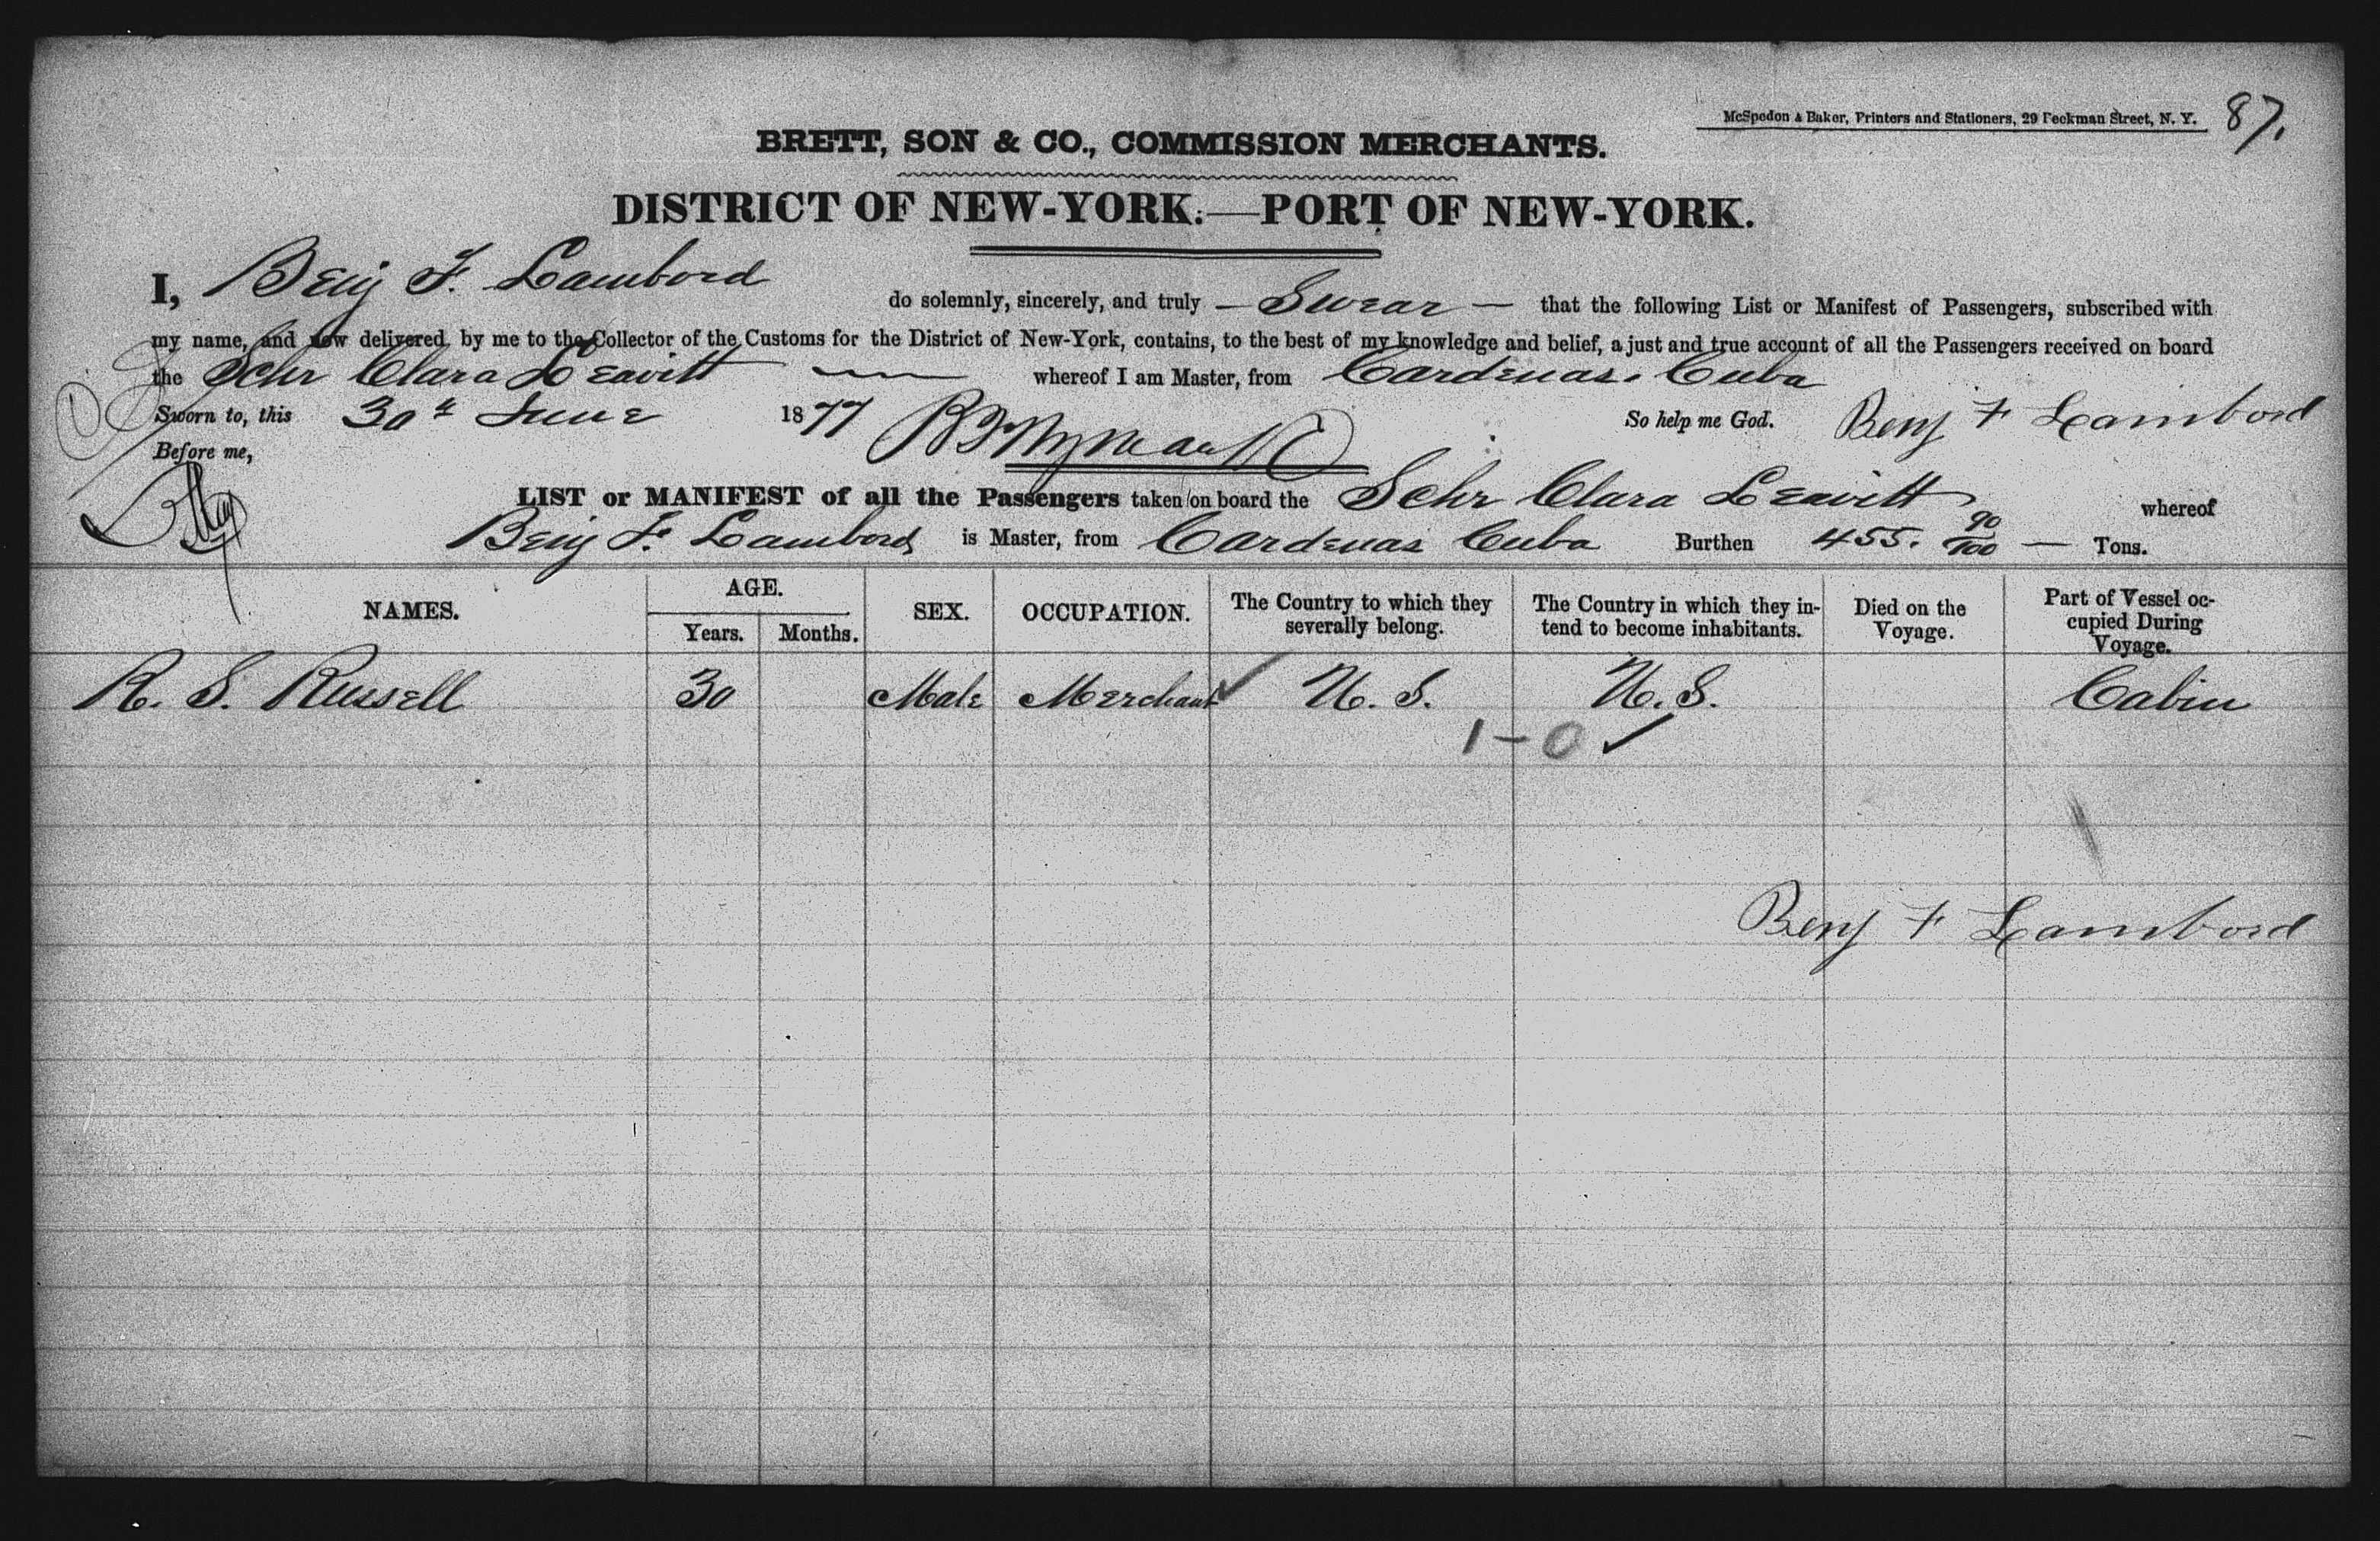 McSpedon & Baker, Printers and Stationers, 29 Beekman Street, N. Y. 87.
BRETT, SON & CO., COMMISSION MERCHANTS.
DISTRICT OF NEW-YORK.—PORT OF NEW-YORK.
I, Benj F. Lambord do solemnly, sincerely, and truly — Swear — that the following List or Manifest of Passengers, subscribed with
my name, and now delivered by me to the Collector of the Customs for the District of New-York, contains, to the best of my knowledge and belief, a just and true account of all the Passengers received on board
the Schr Clara Leavitt whereof I am Master, from Cardenas. Cuba
Sworn to, this 30th June 1877 So help me God. Benj F Lambord
Before me,
LIST or MANIFEST of all the Passengers taken on board the Schr Clara Leavitt whereof
Benj F. Lambord is Master, from Cardenas Cuba Burthen 455. 90/100 — Tons.
NAMES. AGE. Years. Months. SEX. OCCUPATION. The Country to which they severally belong. The Country in which they intend to become inhabitants. Died on the Voyage. Part of Vessel occupied During Voyage.
R. S. Russell 30 Male Merchant ✓ U. S. U. S. Cabin
1 - 0 ✓
Benj F Lambord